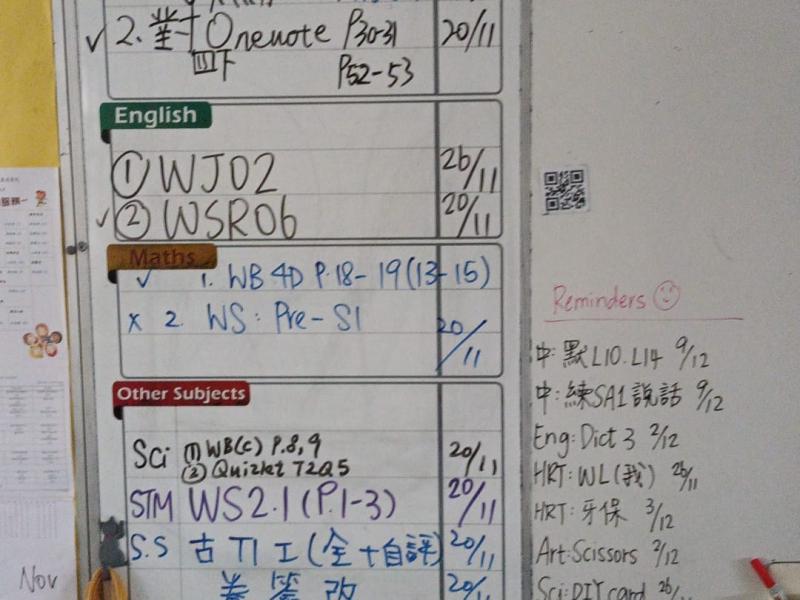 ✓ 2. 對 Onenote P30-31 20/11
四下 P52-53
English
① WJ02 26/11
✓ ② WSR06 20/11
Maths
✓ 1. WB 4D P.18-19 (13-15)
x 2. WS: Pre-S1 20/11
Other Subjects
Sci ① WB(c) P.8,9
② Quizlet T2Q5 20/11
STM WS2.1 (P.1-3) 20/11
S.S 古 T1 工 (全+自評) 20/11
簽 改 20/
Nov
Reminders
中: 默 L10. L14 9/12
中: 練SA1 說話 9/12
Eng: Dict 3 2/12
HRT: WL (我) 26/11
HRT: 牙保 3/12
Art: Scissors 2/12
Sci: DIY card 26/